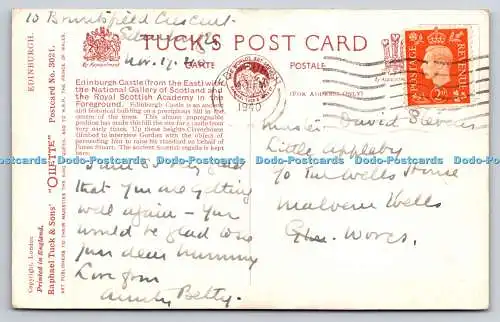 10 Bruntsfield Crescent
Edinburgh
Nov. 17. 40
TUCK'S POST CARD
By Appointment
CARTE POSTALE
By Appointment
(FOR ADDRESS ONLY)
POSTAGE
REVENUE
2D
1940
Edinburgh Castle (from the East) with
the National Gallery of Scotland and
the Royal Scottish Academy in the
Foreground. Edinburgh Castle is an ancient
and historical building on a precipitous hill in the
centre of the town. This almost impregnable
position has made the hill the site for a castle from
very early times. Up these heights Claverhouse
climbed to interview Gordon with the object of
persuading him to raise his standard on behalf of
James Stuart. The ancient Scottish regalia is kept
here.
EDINBURGH.
"OILETTE" Postcard No. 3021.
Raphael Tuck & Sons'
ART PUBLISHERS TO THEIR MAJESTIES THE KING AND QUEEN, AND TO H.R.H. THE PRINCE OF WALES.
Copyright, London
Printed in England.
that you are getting
well again - you
would be glad to see
your dear mummy
Love from
Aunty Betty.
Master David Stevens
Little Appleby
Wells House
Malvern Wells
Glos. Worcs.
Postcards-Data-Com Postcards-Data-Com Postcards-Data-Com Postcards-Data-Com